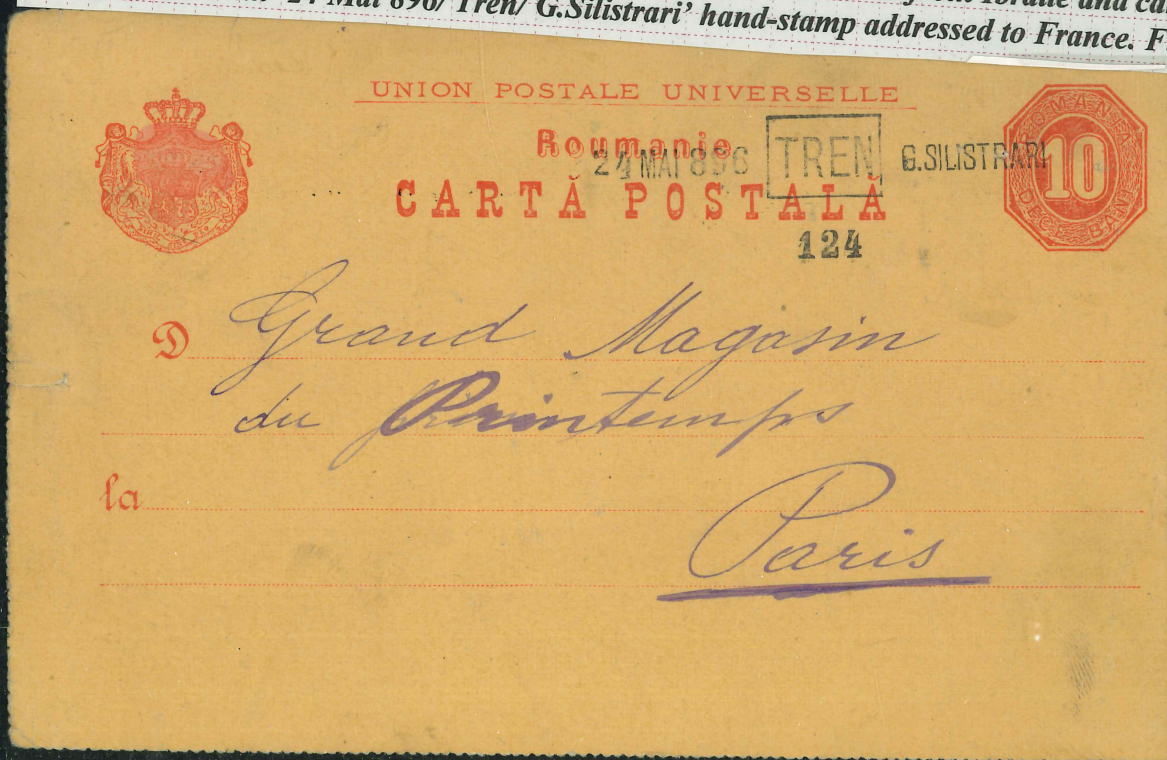 24 Mai 896/ Tren/ G.Silistrari’ hand-stamp addressed to France.
UNION POSTALE UNIVERSELLE
Roumanie
24 MAI 896 TREN G.SILISTRARI
CARTĂ POSTALĂ
124
ROMANIA
10
DECE BANI
D Grand Magasin
du Printemps
la
Paris